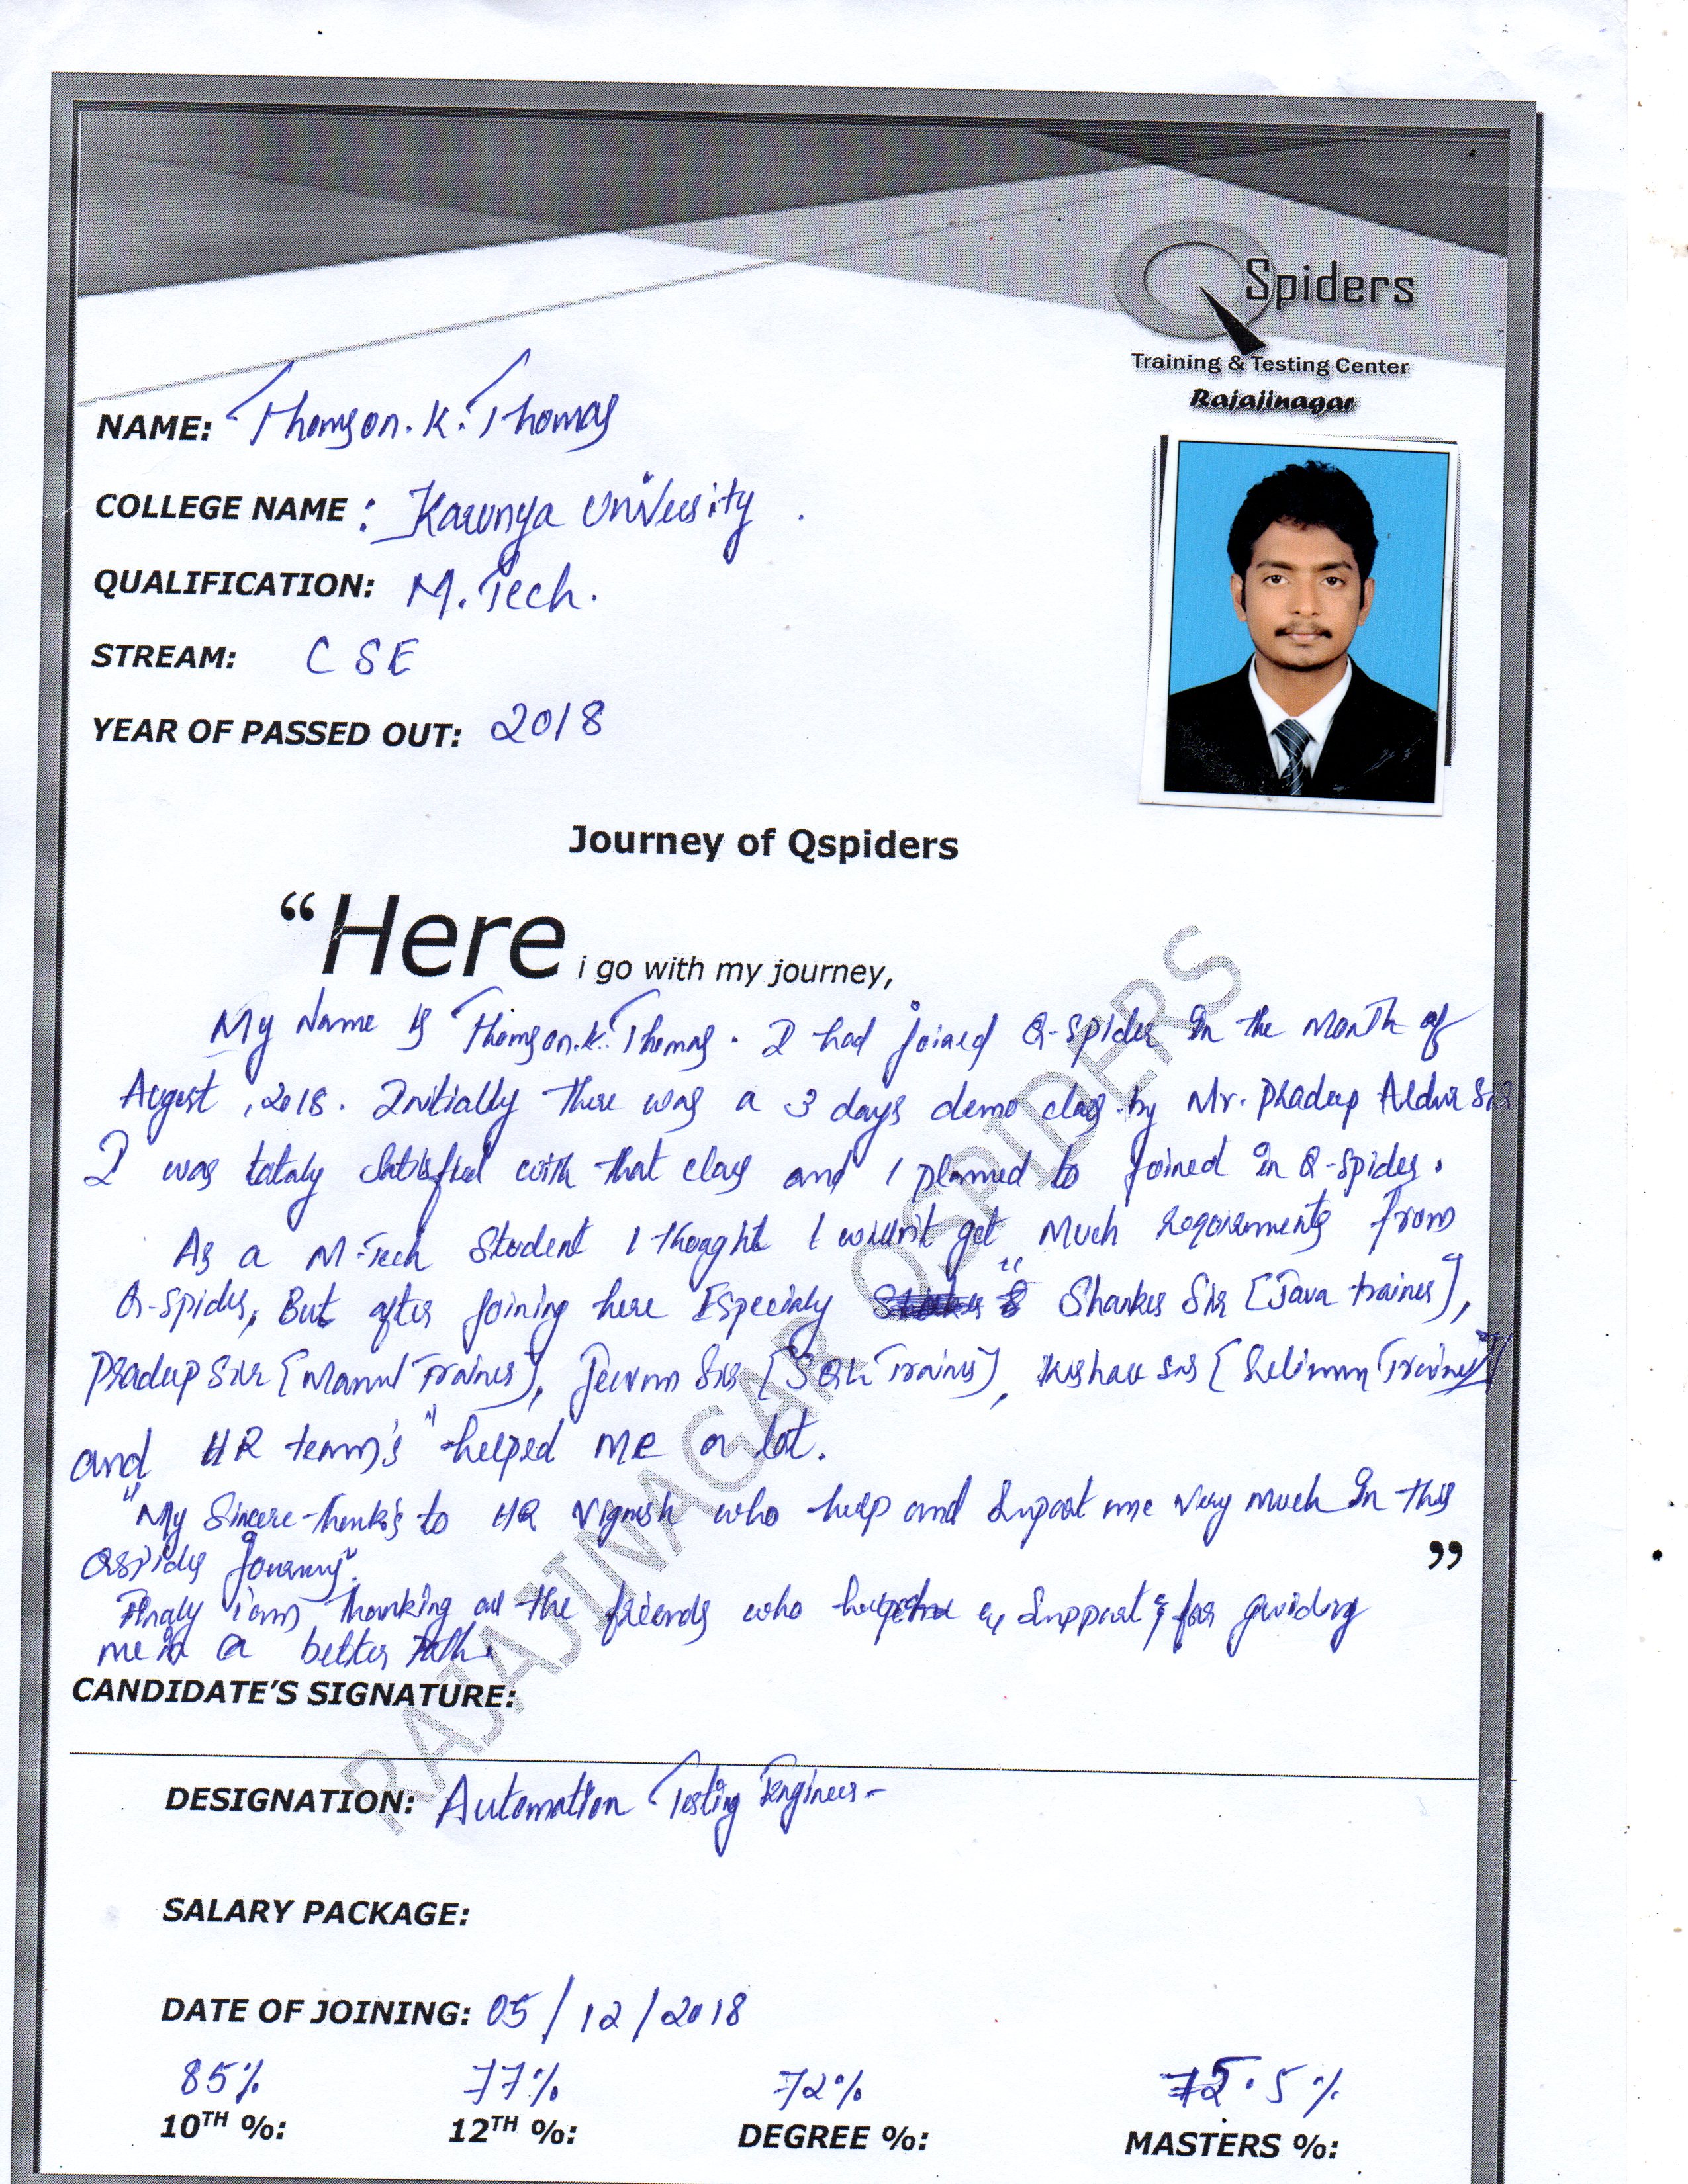 Q Spiders
Training & Testing Center
Rajajinagar
NAME: Thomson.K.Thomas
COLLEGE NAME : Karunya University
QUALIFICATION: M.Tech.
STREAM: CSE
YEAR OF PASSED OUT: 2018
Journey of Qspiders
“Here i go with my journey,
My Name is Thomson.K.Thomas. I had joined Q-Spider in the month of
August, 2018. Initially there was a 3 days demo class by Mr. Pradeep Sir
I was totaly satisfied with that class and I planned to joined in Q-spider.
As a M-Tech student I thought I get much requirements from
Q-spider, But after joining here Especialy “ Shanker Sir [Java trainer],
Pradeep Sir [Manul Trainer], Jeevan Sir [SQL Trainer], Sir [ Trainer]
and HR team's" helped me a lot.
"My Sincere thank's to HR Vignesh who help and Suport me very much in this
Qspider Journey".
Finaly iam thanking all the friends who support & for guiding
me in a better Path.
”
CANDIDATE’S SIGNATURE:
DESIGNATION: Automation Testing Engineer-
SALARY PACKAGE:
DATE OF JOINING: 05/12/2018
85% 77% 72% 75.5%
10TH %: 12TH %: DEGREE %: MASTERS %:
RAJAJINAGAR QSPIDERS